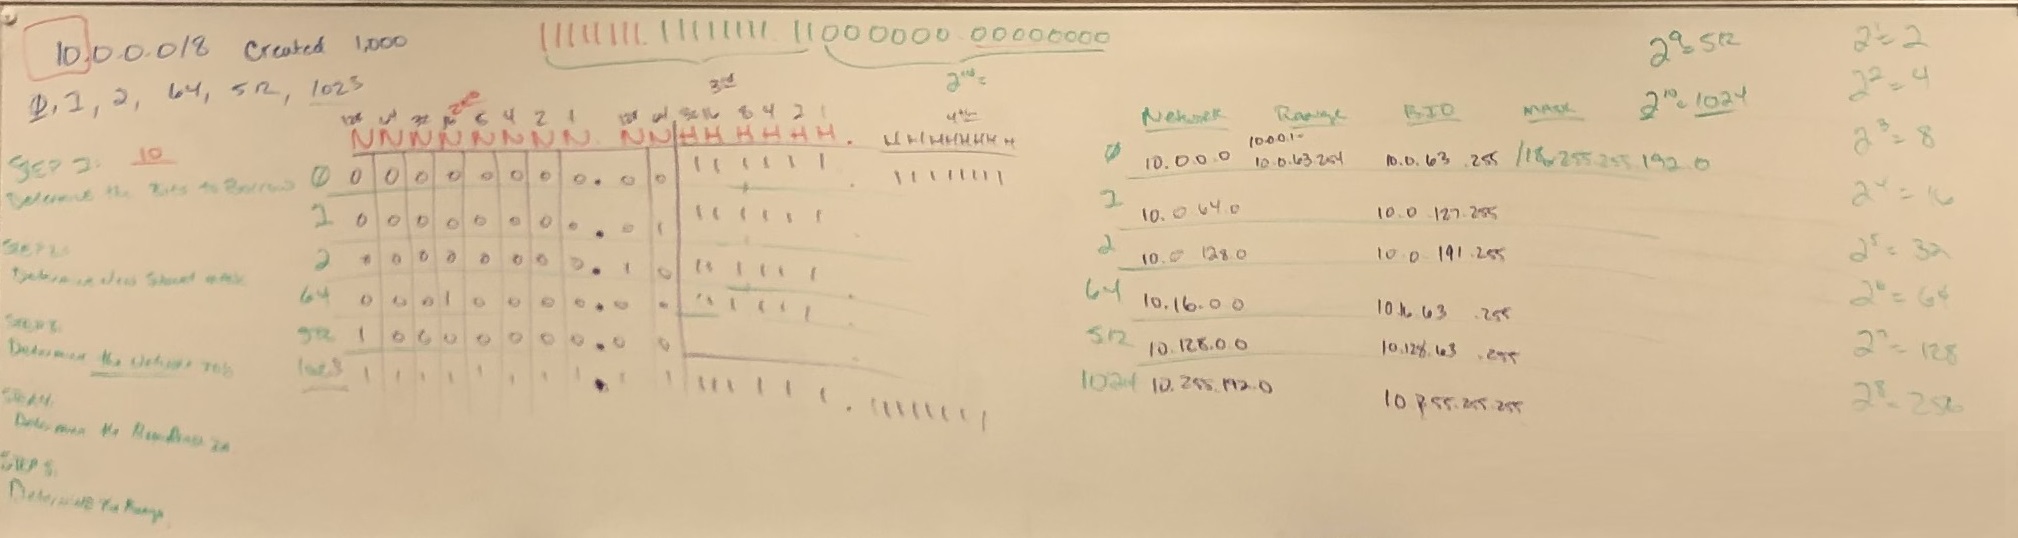 10.0.0.0/8 Created 1,000
11111111.11111111.11000000.00000000
0, 1, 2, 64, 512, 1023
3rd
2nd
4th
128 64 32 16 8 4 2 1 128 64 32 16 8 4 2 1
NNNNNNNN.NNHHHHHH.HHHHHHHH
STEP 1: 10
Determine the Bits to Borrow
0 0 0 0 0 0 0 0 0 . 0 0 1 1 1 1 1 1 . 1 1 1 1 1 1 1 1
1 0 0 0 0 0 0 0 0 . 0 1 1 1 1 1 1 1 .
STEP 2:
Determine New Subnet Mask
2 0 0 0 0 0 0 0 0 . 1 0 1 1 1 1 1 1 .
64 0 0 0 1 0 0 0 0 . 0 0 1 1 1 1 1 1 .
STEP 3:
Determine the Network
512 1 0 0 0 0 0 0 0 . 0 0 .
1023 1 1 1 1 1 1 1 1 . 1 1 1 1 1 1 1 1 . 1 1 1 1 1 1 1 1
STEP 4:
Determine the
STEP 5:
Determine the Range
Network Range BIO MASK
0 10.0.0.0 10.0.0.1- 10.0.63.254 10.0.63.255 /18 255.255.192.0
1 10.0.64.0 10.0.127.255
2 10.0.128.0 10.0.191.255
64 10.16.0.0 10.16.63.255
512 10.128.0.0 10.128.63.255
1024 10.255.192.0 10.255.255.255
2^9=512
2^10=1024
2^1=2
2^2=4
2^3=8
2^4=16
2^5=32
2^6=64
2^7=128
2^8=256